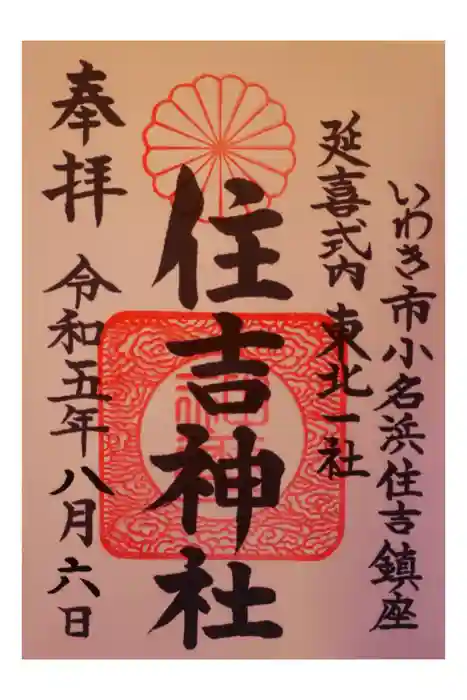 いわき市小名浜住吉鎮座
延喜式内 東北一社
住吉神社
奉拝 令和五年八月六日